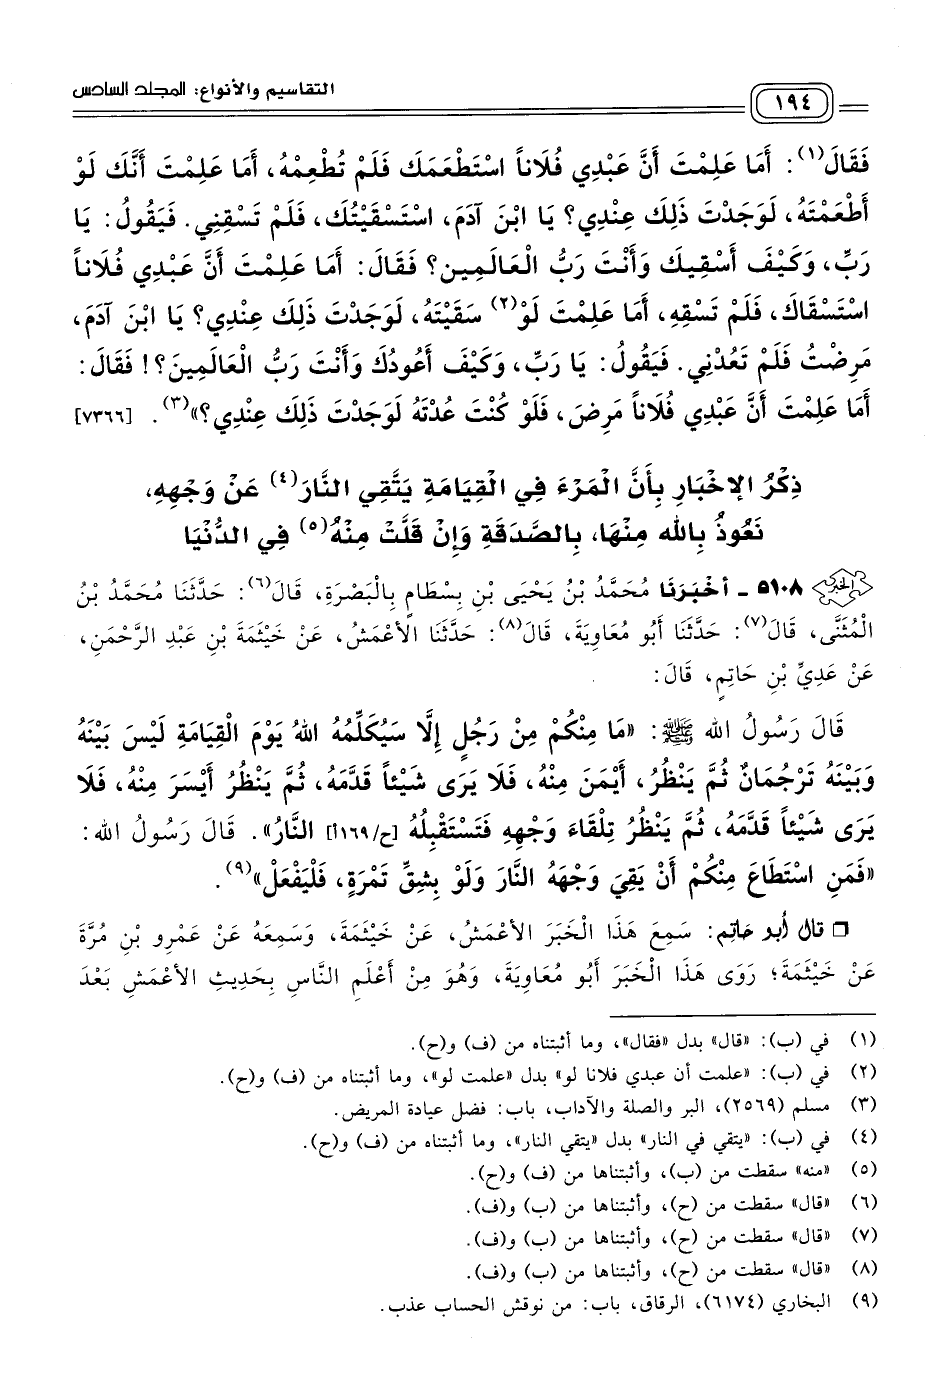 التقاسيم والأنواع: المجلد السادس
١٩٤
فَقَالَ(١): أَمَا عَلِمْتَ أَنَّ عَبْدِي فُلَاناً اسْتَطْعَمَكَ فَلَمْ تُطْعِمْهُ، أَمَا عَلِمْتَ أَنَّكَ لَوْ
أَطْعَمْتَهُ، لَوَجَدْتَ ذَلِكَ عِنْدِي؟ يَا ابْنَ آدَمَ، اسْتَسْقَيْتُكَ، فَلَمْ تَسْقِنِي. فَيَقُولُ: يَا
رَبِّ، وَكَيْفَ أَسْقِيكَ وَأَنْتَ رَبُّ الْعَالَمِينَ؟ فَقَالَ: أَمَا عَلِمْتَ أَنَّ عَبْدِي فُلَاناً
اسْتَسْقَاكَ، فَلَمْ تَسْقِهِ، أَمَا عَلِمْتَ لَوْ(٢) سَقَيْتَهُ، لَوَجَدْتَ ذَلِكَ عِنْدِي؟ يَا ابْنَ آدَمَ،
مَرِضْتُ فَلَمْ تَعُدْنِي. فَيَقُولُ: يَا رَبِّ، وَكَيْفَ أَعُودُكَ وَأَنْتَ رَبُّ الْعَالَمِينَ؟! فَقَالَ:
أَمَا عَلِمْتَ أَنَّ عَبْدِي فُلَاناً مَرِضَ، فَلَوْ كُنْتَ عُدْتَهُ لَوَجَدْتَ ذَلِكَ عِنْدِي؟»(٣). [٧٣٦٦]
ذِكْرُ الإِخْبَارِ بِأَنَّ الْمَرْءَ فِي الْقِيَامَةِ يَتَّقِي النَّارَ(٤) عَنْ وَجْهِهِ،
نَعُوذُ بِاللهِ مِنْهَا، بِالصَّدَقَةِ وَإِنْ قَلَّتْ مِنْهُ(٥) فِي الدُّنْيَا
٥١٠٨ - أَخْبَرَنَا مُحَمَّدُ بْنُ يَحْيَى بْنِ بِسْطَامٍ بِالْبَصْرَةِ، قَالَ(٦): حَدَّثَنَا مُحَمَّدُ بْنُ
الْمُثَنَّى، قَالَ(٧): حَدَّثَنَا أَبُو مُعَاوِيَةَ، قَالَ(٨): حَدَّثَنَا الأَعْمَشُ، عَنْ خَيْثَمَةَ بْنِ عَبْدِ الرَّحْمَنِ،
عَنْ عَدِيِّ بْنِ حَاتِمٍ، قَالَ:
قَالَ رَسُولُ اللهِ ﷺ: «مَا مِنْكُمْ مِنْ رَجُلٍ إِلَّا سَيُكَلِّمُهُ اللهُ يَوْمَ الْقِيَامَةِ لَيْسَ بَيْنَهُ
وَبَيْنَهُ تَرْجُمَانٌ ثُمَّ يَنْظُرُ، أَيْمَنَ مِنْهُ، فَلَا يَرَى شَيْئاً قَدَّمَهُ، ثُمَّ يَنْظُرُ أَيْسَرَ مِنْهُ، فَلَا
يَرَى شَيْئاً قَدَّمَهُ، ثُمَّ يَنْظُرُ تِلْقَاءَ وَجْهِهِ فَتَسْتَقْبِلُهُ [ح/١٦٩أ] النَّارُ». قَالَ رَسُولُ اللهِ:
«فَمَنِ اسْتَطَاعَ مِنْكُمْ أَنْ يَقِيَ وَجْهَهُ النَّارَ وَلَوْ بِشِقِّ تَمْرَةٍ، فَلْيَفْعَلْ»(٩).
❒ قال أبو حاتم: سَمِعَ هَذَا الْخَبَرَ الأَعْمَشُ، عَنْ خَيْثَمَةَ، وَسَمِعَهُ عَنْ عَمْرِو بْنِ مُرَّةَ
عَنْ خَيْثَمَةَ؛ رَوَى هَذَا الْخَبَرَ أَبُو مُعَاوِيَةَ، وَهُوَ مِنْ أَعْلَمِ النَّاسِ بِحَدِيثِ الأَعْمَشِ بَعْدَ
(١) في (ب): «قال» بدل «فقال»، وما أثبتناه من (ف) و(ح).
(٢) في (ب): «علمت أن عبدي فلانا لو» بدل «علمت لو»، وما أثبتناه من (ف) و(ح).
(٣) مسلم (٢٥٦٩)، البر والصلة والآداب، باب: فضل عيادة المريض.
(٤) في (ب): «يتقي في النار» بدل «يتقي النار»، وما أثبتناه من (ف) و(ح).
(٥) «منه» سقطت من (ب)، وأثبتناها من (ف) و(ح).
(٦) «قال» سقطت من (ح)، وأثبتناها من (ب) و(ف).
(٧) «قال» سقطت من (ح)، وأثبتناها من (ب) و(ف).
(٨) «قال» سقطت من (ح)، وأثبتناها من (ب) و(ف).
(٩) البخاري (٦١٧٤)، الرقاق، باب: من نوقش الحساب عذب.